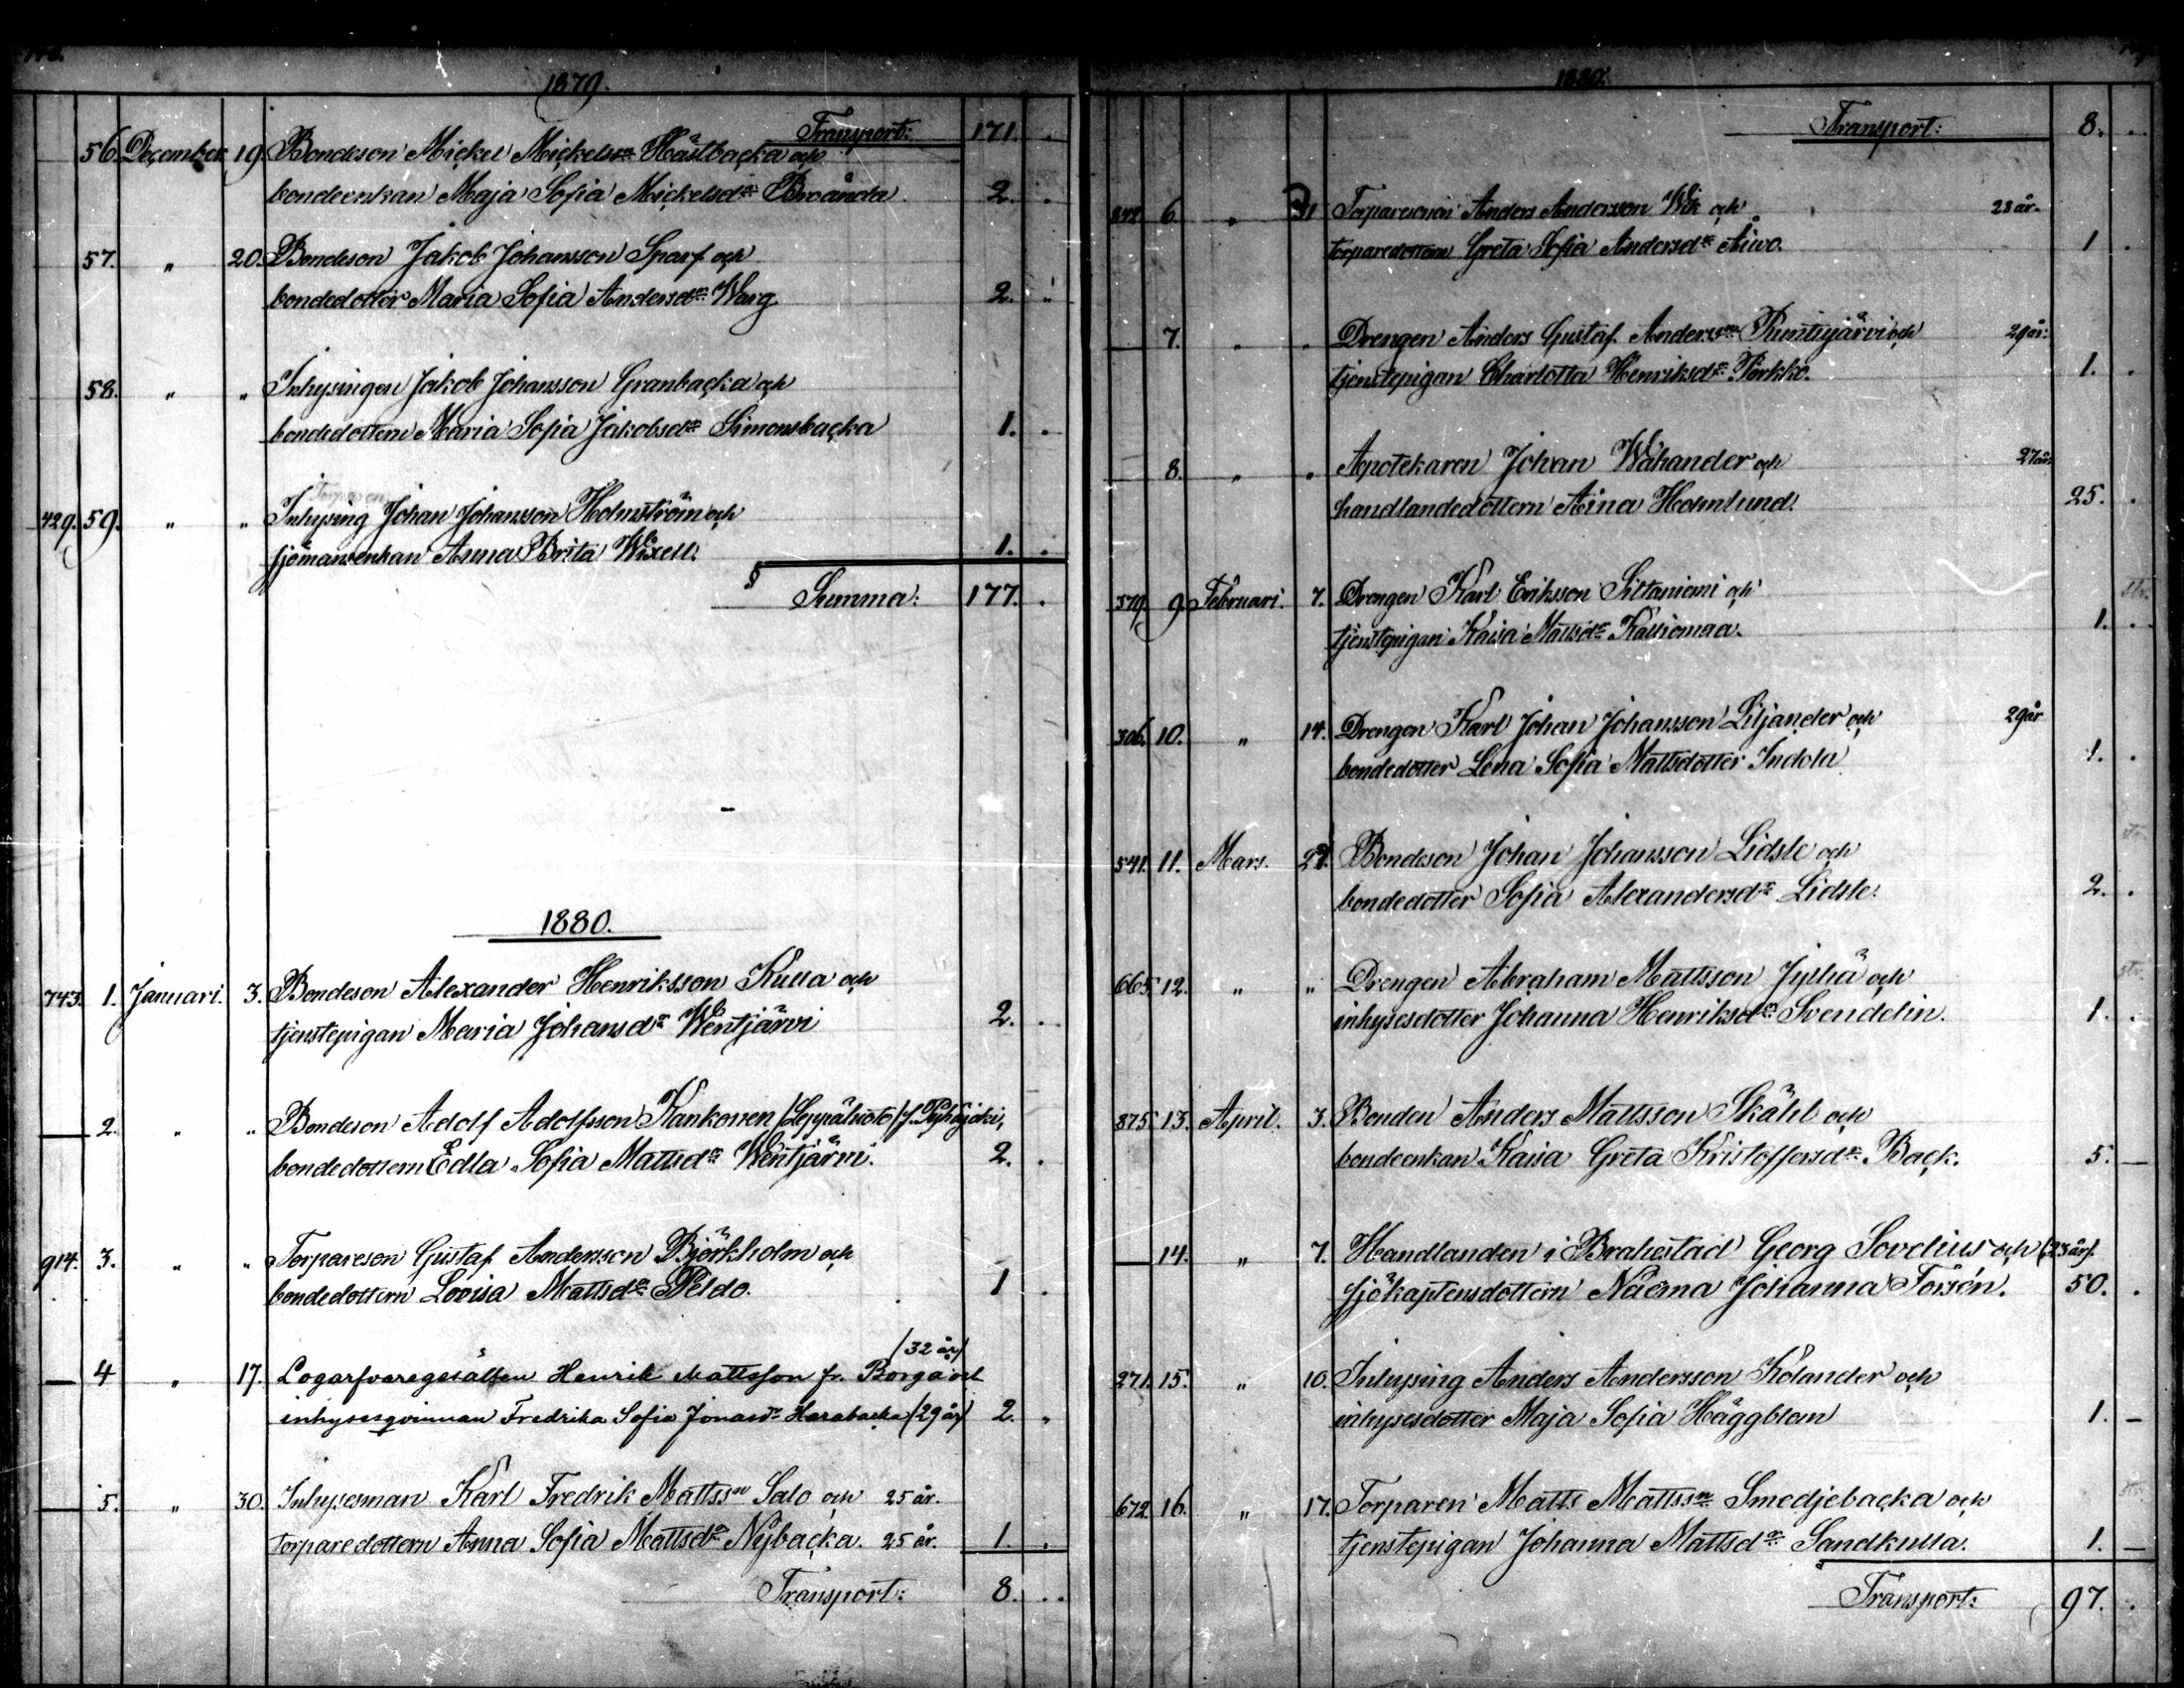 1879.
Transport: 171.
56. December 19. Bondeson Mickel Mickelsn Hästbacka och
bondeenkan Maja Sofia Mickelsdr Broända 2.
57. " 20. Bondeson Jakob Johansson Sparf och
bondedotter Maria Sofia Andersdr Warg 2.
58. " " Inhysingen Jakob Johansson Granbacka och
bondedottern Maria Sofia Jakobsdr Simonsbacka 1.
Torparen
429. 59. " " Inhysing Johan Johansson Holmström och
sjömansenkan Anna Brita Wixell. 1.
Summa: 177.
1880.
743. 1. Januari. 3. Bondeson Alexander Henriksson Kulla och
tjenstepigan Maria Johansdr Wentjärvi 2.
— 2. " " Bondeson Adolf Adolfsson Kankonen /Leppäluoto/ f. Pyhäjoki,
bondedottern Edla Sofia Mattsdr Wentjärvi. 2.
914. 3. " " Torpareson Gustaf Andersson Björkholm och
bondedottern Lovisa Mattsdr Peldo. 1
/32 år/
— 4 " 17. Logarfvaregesällen Henrik Mattsson fr. Borgå och
inhysesqvinnan Fredrika Sofia Jonasdr Harabacka /29 år/ 2. "
— 5. " 30. Inhysesman Karl Fredrik Mattssn Salo och 25 år.
torparedottern Anna Sofia Mattsdr Nybacka. 25 år. 1.
Transport: 8.
1880.
Transport: 8.
6 " 31 Torpareson Anders Andersson Wik och 28 år.
torparedottern Greta Sofia Andersdr Aiwo. 1
— 7. " " Drengen Anders Gustaf Anderssn Runtujärvi och 29 år.
tjenstepigan Charlotta Henriksdr Pörkkö. 1.
8. " " Apotekaren Johan Wåhander och 27 år.
handlandedottern Aina Holmlund. 25.
379. 9. Februari. 7. Drengen Karl Eriksson Siltaniemi och
tjenstepigan Kaisa Mattsdr Kalliomaa. 1.
306. 10. " 14. Drengen Karl Johan Johansson Liljander och 29 år
bondedotter Lena Sofia Mattsdotter Indola 1.
541. 11. Mars. 27. Bondeson Johan Johansson Lidsle och
bondedotter Sofia Alexandersdr Lidsle. 2.
665. 12. " " Drengen Abraham Mattsson Jylhä och
inhysesdotter Johanna Henriksdr Svendelin. 1.
875. 13. April. 3. Bonden Anders Mattsson Skåhl och
bondeenkan Kaisa Greta Kristoffersdr Back. 5. —
— 14. " 7. Handlanden i Brahestad Georg Sovelius och (23 år).
sjökaptensdottern Naëma Johanna Forsén. 50.
271. 15. " 10. Inhysing Anders Andersson Kölander och
inhysesdotter Maja Sofia Häggblom 1. —
672. 16. " 17. Torparen Matts Mattssn Smedjebacka och
tjenstepigan Johanna Mattsdr Sandkulla. 1. —
Transport: 97.